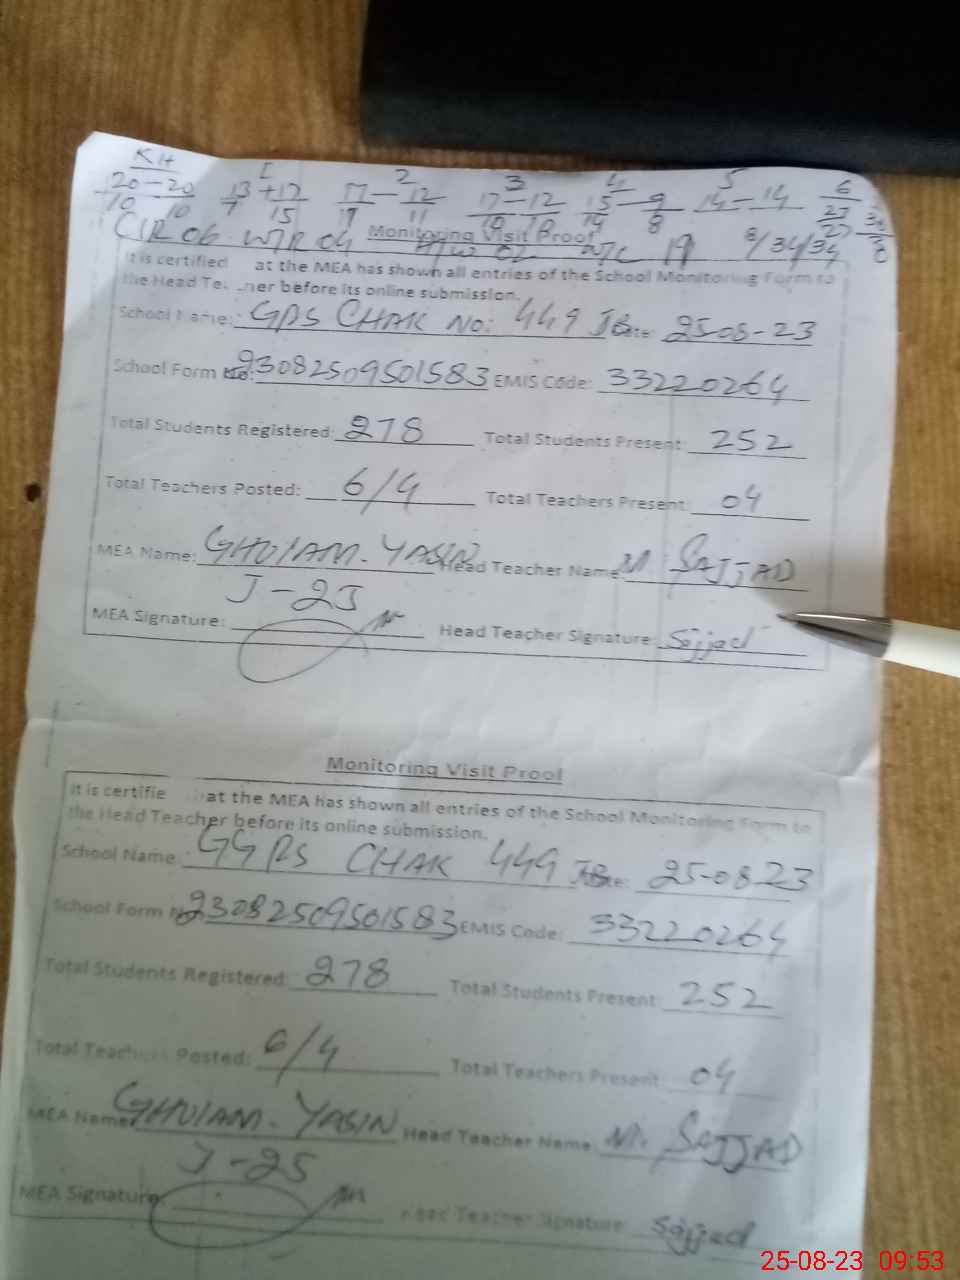 KH 1 2 3 4 5 6
20-20 13+12 17-12 17-12 15-9 14-14 27
10 10 7 15 19 11 19 18 14 8 8/34/34 27
CIR 06 WIR 04 Monitoring Visit Proof W/C 19
It is certified at the MEA has shown all entries of the School Monitoring Form to
the Head Te ner before its online submission.
School Name: GPS CHAK No: 449 JB Date: 25-08-23
School Form No: 23082509501583 EMIS Code: 33220264
Total Students Registered: 278 Total Students Present: 252
Total Teachers Posted: 6/4 Total Teachers Present: 04
MEA Name: GHULAM. YASIN Head Teacher Name M. SAJJAD
J-25
MEA Signature: Head Teacher Signature: Sajjad
Monitoring Visit Proof
It is certifie at the MEA has shown all entries of the School Monitoring Form to
the Head Teacher before its online submission.
School Name: GGPS CHAK 449 JB Date: 25-08-23
School Form No 23082509501583 EMIS Code: 33220264
Total Students Registered: 278 Total Students Present: 252
Total Teachers Posted: 6/4 Total Teachers Present: 04
MEA Name: GHULAM. YASIN Head Teacher Name M. SAJJAD
J-25
MEA Signature: Head Teacher Signature: Sajjad
25-08-23 09:53